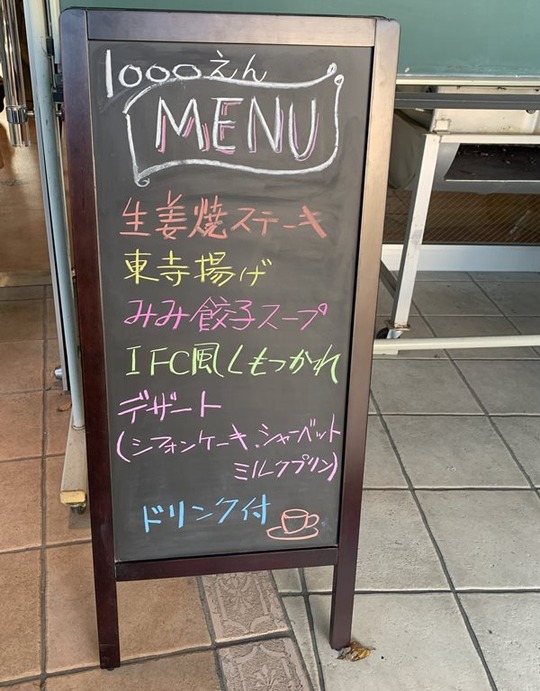 1000えん
MENU
生姜焼ステーキ
東寺揚げ
みみ餃子スープ
IFC風しもつかれ
デザート
(シフォンケーキ、シャーベット
ミルクプリン)
ドリンク付